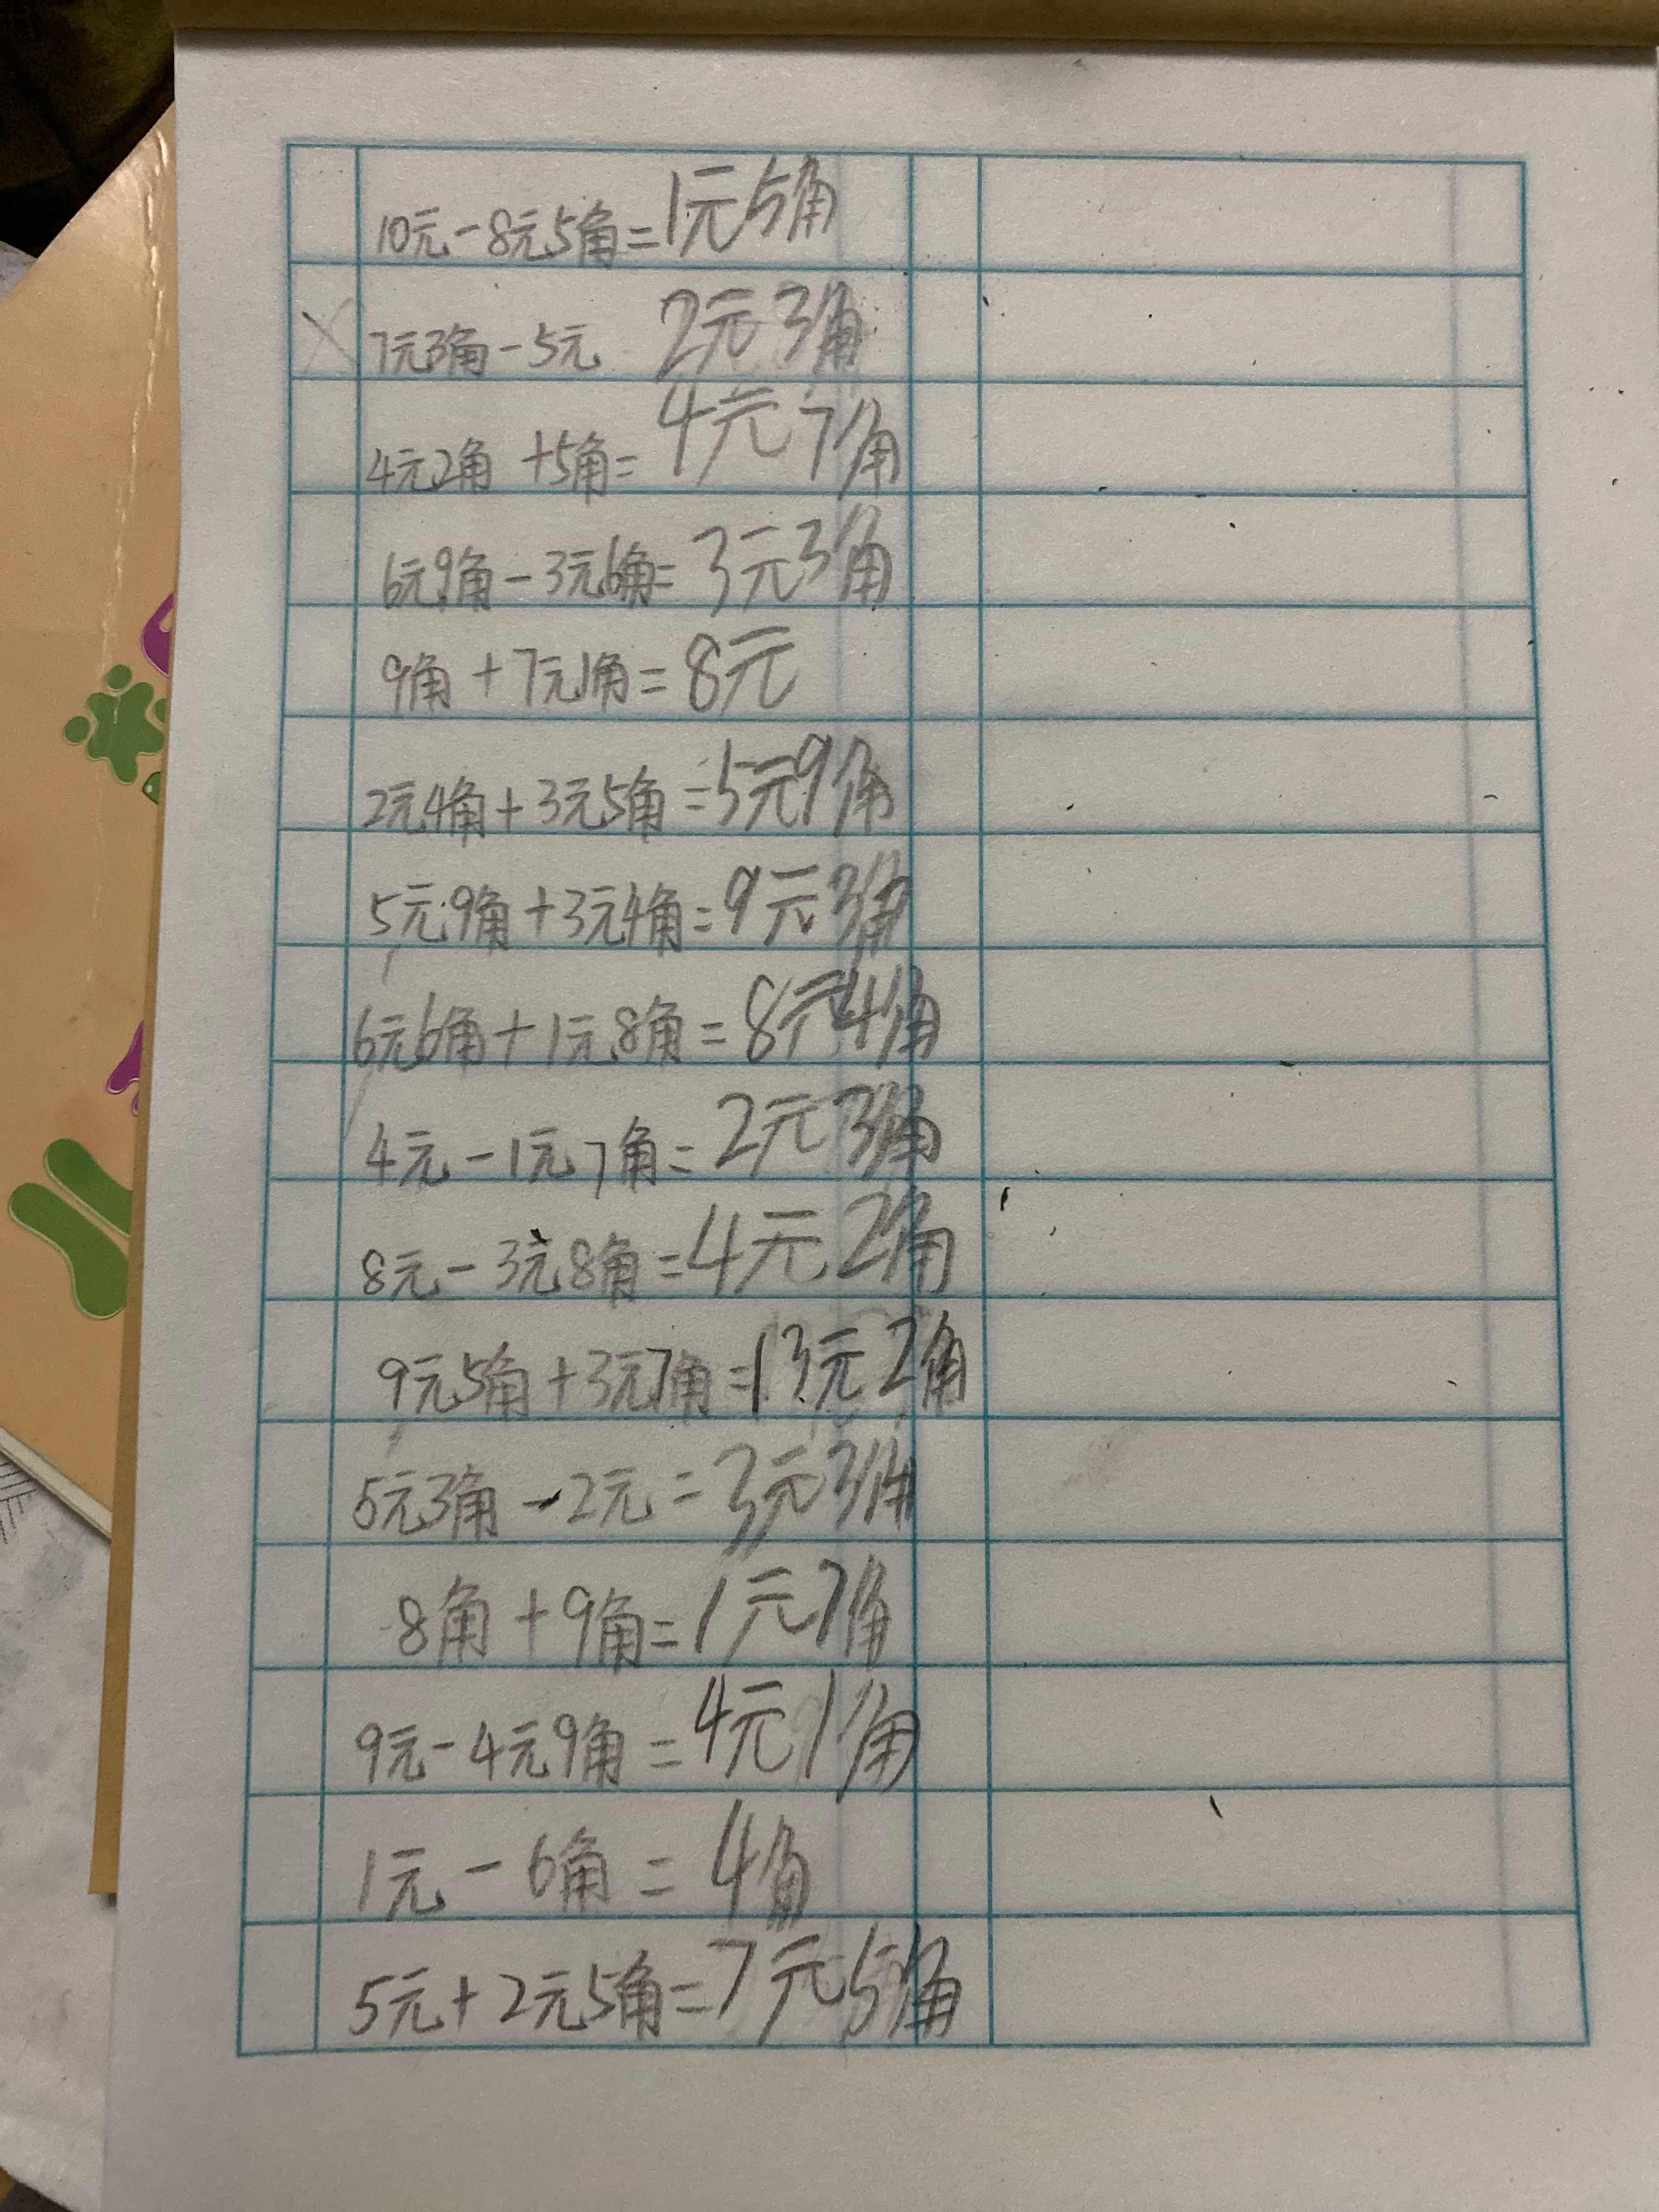 10元-8元5角=1元5角
× 7元3角-5元 2元3角
4元2角+5角=4元7角
6元9角-3元6角=3元3角
9角+7元1角=8元
2元4角+3元5角=5元9角
5元9角+3元4角=9元3角
6元6角+1元8角=8元4角
4元-1元7角=2元3角
8元-3元8角=4元2角
9元5角+3元7角=13元2角
5元3角-2元=3元3角
8角+9角=1元7角
9元-4元9角=4元1角
1元-6角=4角
5元+2元5角=7元5角